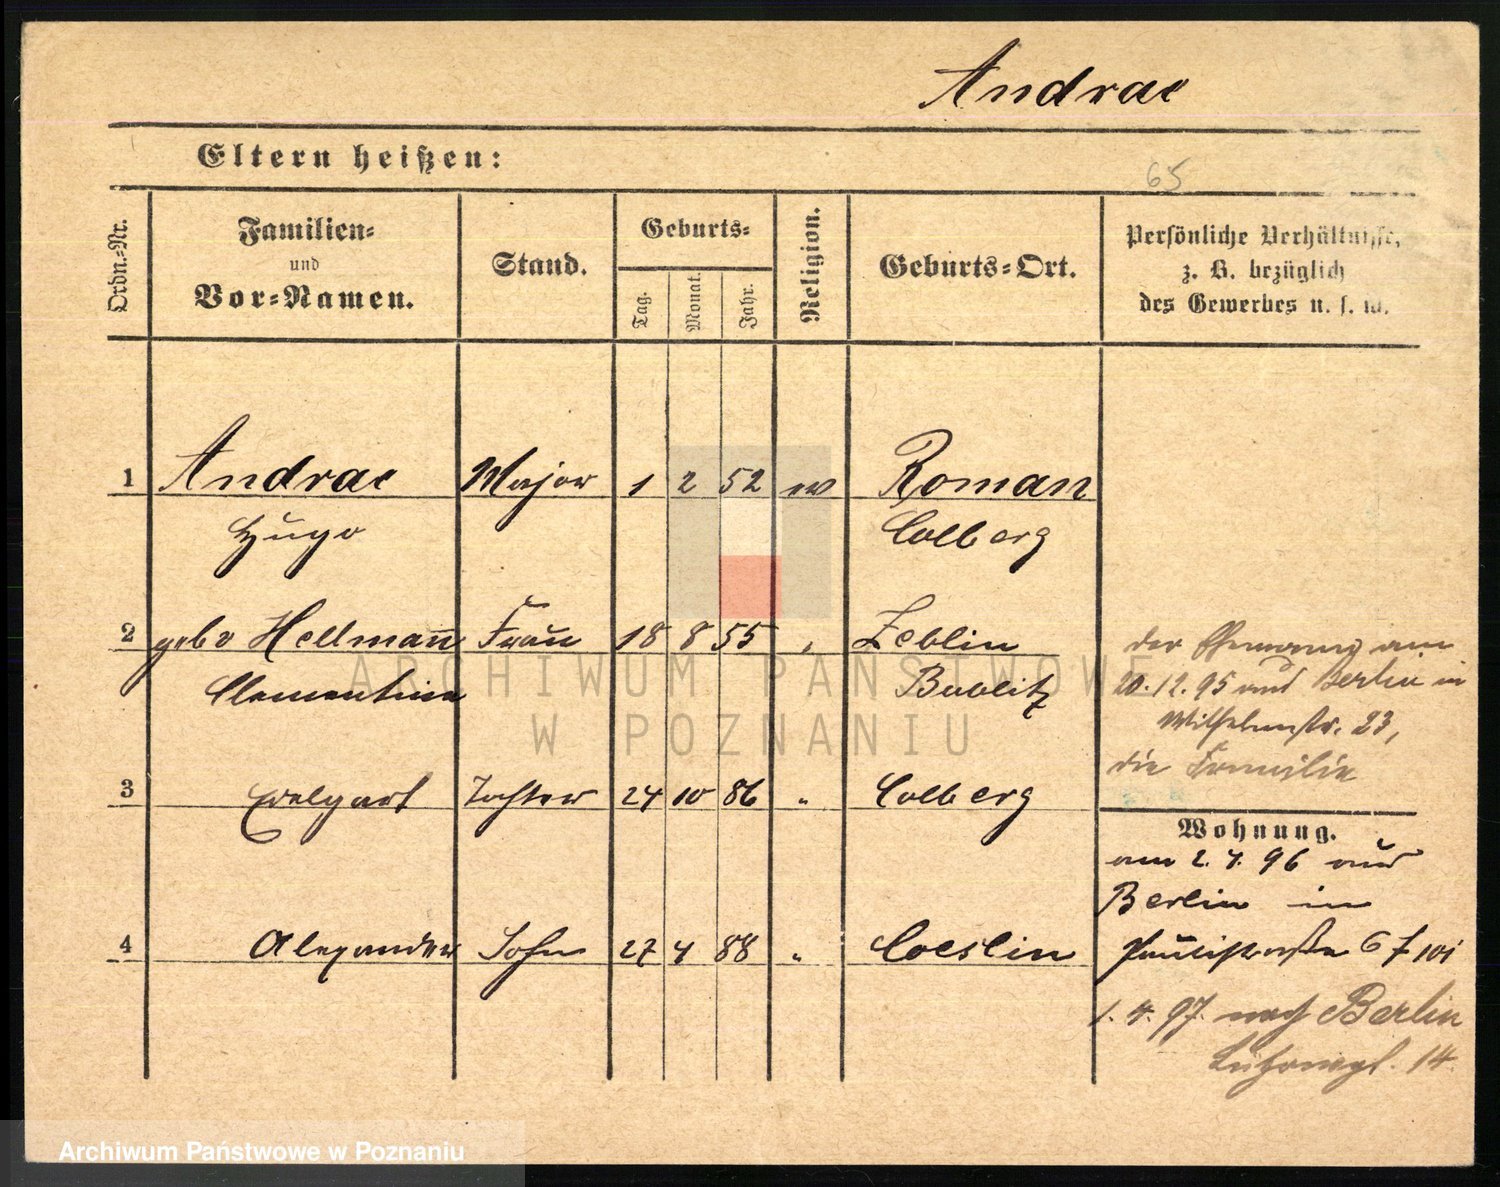 Andrae
Eltern heißen:
65
Ordn.-Nr.
Familien-
und
Vor-Namen.
Stand.
Geburts-
Tag.
Monat.
Jahr.
Religion.
Geburts-Ort.
Persönliche Verhältnisse,
z. B. bezüglich
des Gewerbes u. s. w.
1 Andrae Major 1 2 52 ev Roman
Hugo Colberg
2 geb Hellmann Frau 18 8 55 " Zeblin
Clementine Bublitz
der Ehemann am
20.12.95 aus Berlin in
Wilhelmstr. 23,
die Familie
3 Tochter 24 10 86 " Colberg
Wohnung.
am 2. 4. 96 aus
Berlin in
4 Alexander Sohn 27 4 88 " Coeslin
Paulistraße 6
1. 4. 97. nach Berlin
14.
ARCHIWUM PAŃSTWOWE
W POZNANIU
Archiwum Państwowe w Poznaniu